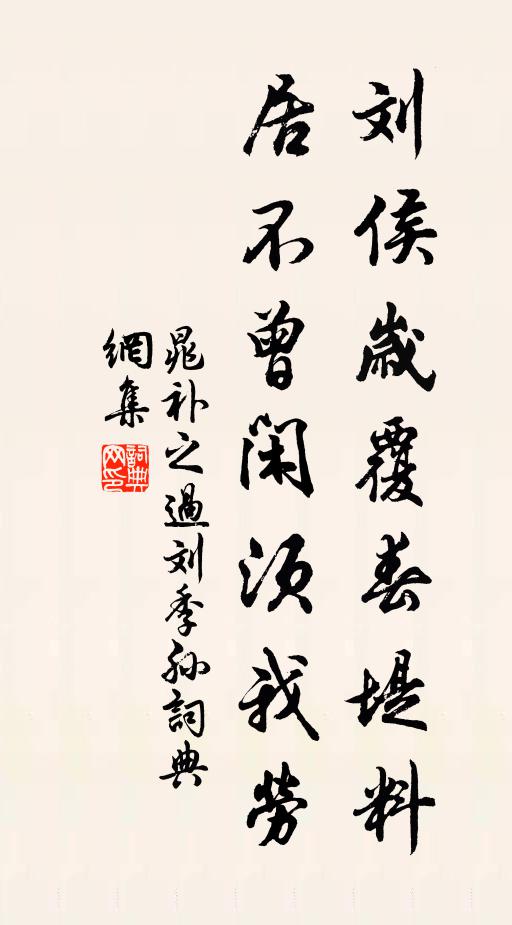 刘侯岁覆春堤料
居不曾闲须我劳
晁补之過刘季孙詞典
網集
詞典網印